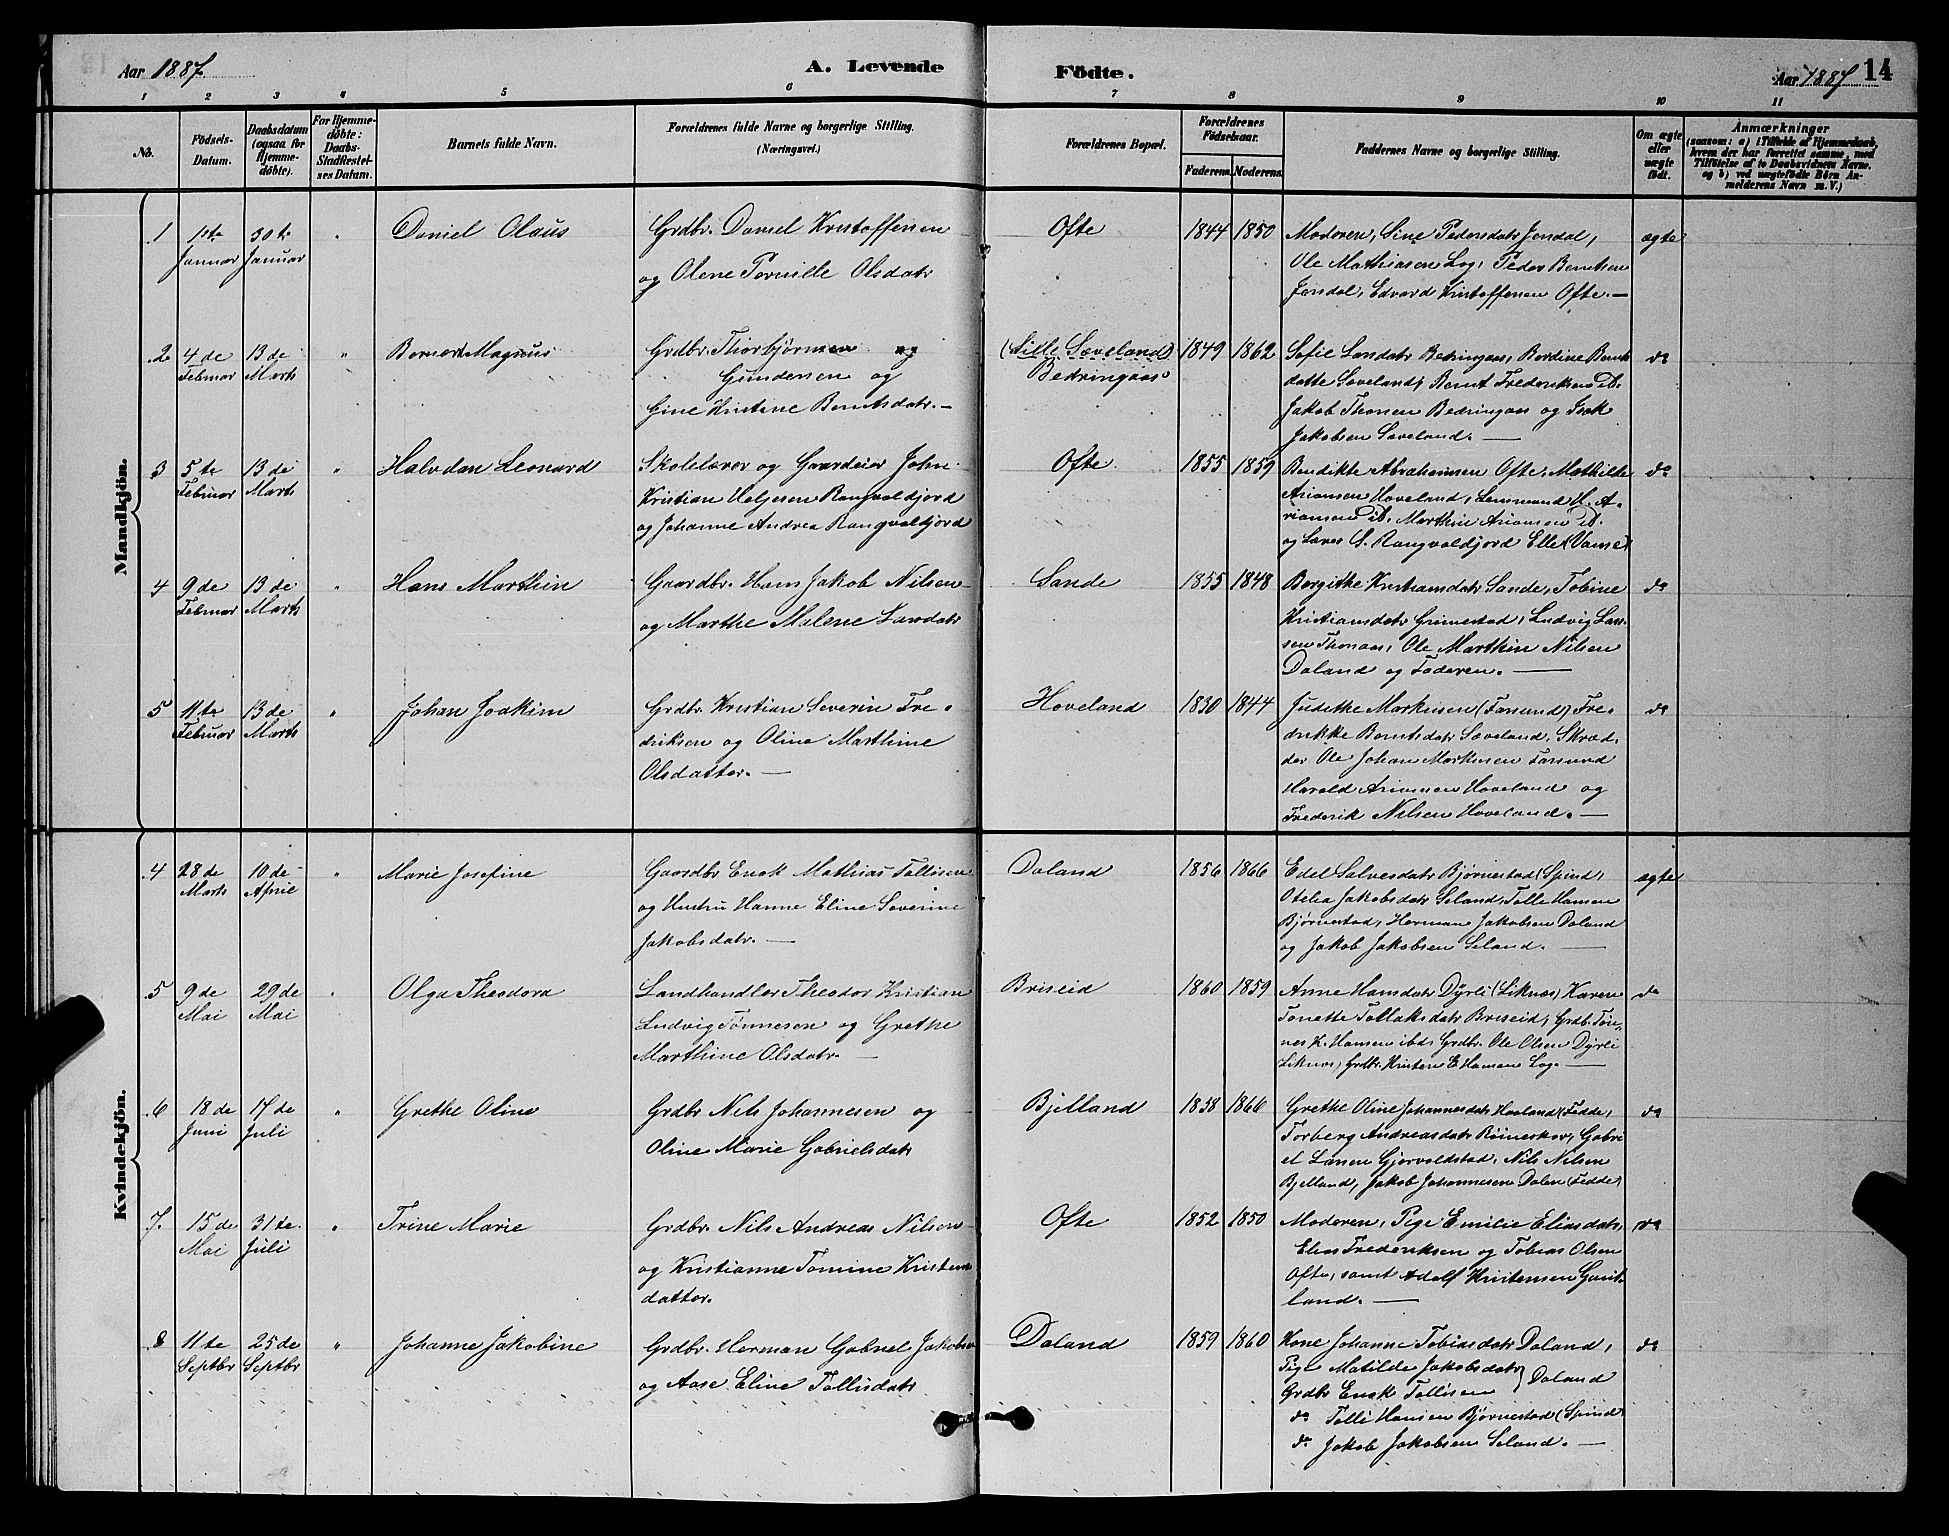 Aar 1887
A. Levende
Födte.
Aar 1887
14
1 2 3 4 5 6 7 8 9 10 11
No.
Födsels-
Datum.
Daabsdatum
(ogsaa for
Hjemme-
döbte).
For Hjemme-
döbte:
Daabs-
Stadfestel-
ses Datum.
Barnets fulde Navn.
Forældrenes fulde Navne og borgerlige Stilling.
(Næringsvei.)
Forældrenes Bopæl.
Forældrenes
Födselsaar.
Faderens. Moderens.
Faddernes Navne og borgerlige Stilling.
Om ægte
eller
uægte
födt.
Anmærkninger
(saasom: a) i Tilfælde af Hjemmedaab,
hvem der har forrettet samme, med
Tilföielse af to Daabsvidners Navne,
og b) ved uægtefödte Börn An-
melderens Navn m. V.)
Mandkjön.
1
1te
Januar
30te
Januar
"
Daniel Olaus
Grdbr. Daniel Kristoffersen
og Olene Pernille Olsdatr
Ofte
1844 1850
Moderen, Sine Pedersdatr Jendal,
Ole Mathiasen Log, Peder Berntsen
Jendal, Edvard Kristoffersen Ofte.—
ægte
2
4de
Februar
13de
Marts
"
Bernert Magnus
Grdbr. Thorbjørnsen og
Gundersen og
Gine Kristine Berntsdatr.—
(Lille Sæveland)
Bedringaas
1849 1862
Sofie Larsdatr Bedringaas, Berdine Bernts
datte Sæveland, Bernt Frederiksen ib.
Jakob Thorsen Bedringaas og Isak
Jakobsen Sæveland.—
do
3
5te
Februar
13de
Marts
"
Halvdan Leonard
Skolelærer og Gaardeier John
Kristian Heljesen Rangvaldjord
og Johanne Andrea Rangvaldjord
Ofte
1855 1859
Bendikte Abrahamsen Ofte, Mathilde
Ariansen Hoveland, Lensmand H. A-
riansen ib. Marthin Ariansen ib.
og Lærer S. Rangvaldjord Elle (Vanse)
do
4
9de
Februar
13de
Marts
"
Hans Marthin
Gaardbr. Hans Jakob Nilsen
og Marthe Malene Larsdatr
Sande
1855 1848
Bergithe Kristiansdatr Sande, Tobine
Kristiansdatr Grimestad, Ludvig Lar-
sen Thomaas, Ole Marthin Nilsen
Daland og Faderen.—
do
5
11te
Februar
13de
Marts
"
Johan Joakim
Grdbr. Kristian Severin Fre-
driksen og Oline Marthine
Olsdatter.—
Hoveland
1830 1844
Judithe Markusen (Farsund) Fre-
drikke Berntsdatr Sæveland, Skræd-
der Ole Johan Markusen Farsund
Harald Ariansen Hoveland og
Frederik Nilsen Hoveland.—
do
Kvindekjön.
4
28de
Marts
10de
April
"
Marie Josefine
Gaardbr Enok Mathias Tollisen
og Hustru Hanne Eline Severine
Jakobsdatr.—
Daland
1856 1866
Edel Salvesdatr Bjørnestad (Spind,
Otelia Jakobsdatr Seland, Tolle Hansen
Bjørnestad, Herman Jakobsen Daland
og Jakob Jakobsen Seland.—
ægte
5
9de
Mai
29de
Mai
"
Olga Theodora
Landhandler Theodor Kristian
Ludvig Tønnesen og Grethe
Marthine Olsdatr.—
Briseid
1860 1859
Anne Hansdatr Dyrli (Liknes) Karen
Tonette Tollaksdatr Briseid, Grdb. Tøn-
nes K. Hansen ibds Grdbr. Ole Olsen Dyrli
Liknes, Grdbr. Kristen E Hansen Log.—
do
6
18de
Juni
17de
Juli
"
Grethe Oline
Grdbr Nils Johannesen og
Oline Marie Gabrielsdatr
Bjelland
1838 1866
Grethe Oline Johannesdatr Hovland (Fedde,
Torberg Andreasdatr Röineskor, Gabri
el Larsen Gjervoldstad, Nils Nilsen
Bjelland, Jakob Johannesen Dalen (Fedde)
do
7.
15de
Mai
31te
Juli
"
Trine Marie
Grdbr. Nils Andreas Nilsen
og Kristianne Tomine Kristens
datter.
Ofte
1852 1850
Moderen, Pige Emilie Eliasdatr,
Elias Frederiksen og Tobias Olsen
Ofte, samt Adolf Kristensen
land.—
do
8
11te
Septbr
25de
Septbr
"
Johanne Jakobine
Grdbr. Herman Gabriel Jakobsen
og Aase Eline Tollisdatr
Daland
1859 1860
Kone Johanne Tobiasdatr Daland,
Pige Matilde Jakobsdatr
Grdbr Enok Tollisen } Daland
do Tolli Hansen Bjørnestad (Spind)
do Jakob Jakobsen Seland.—
do